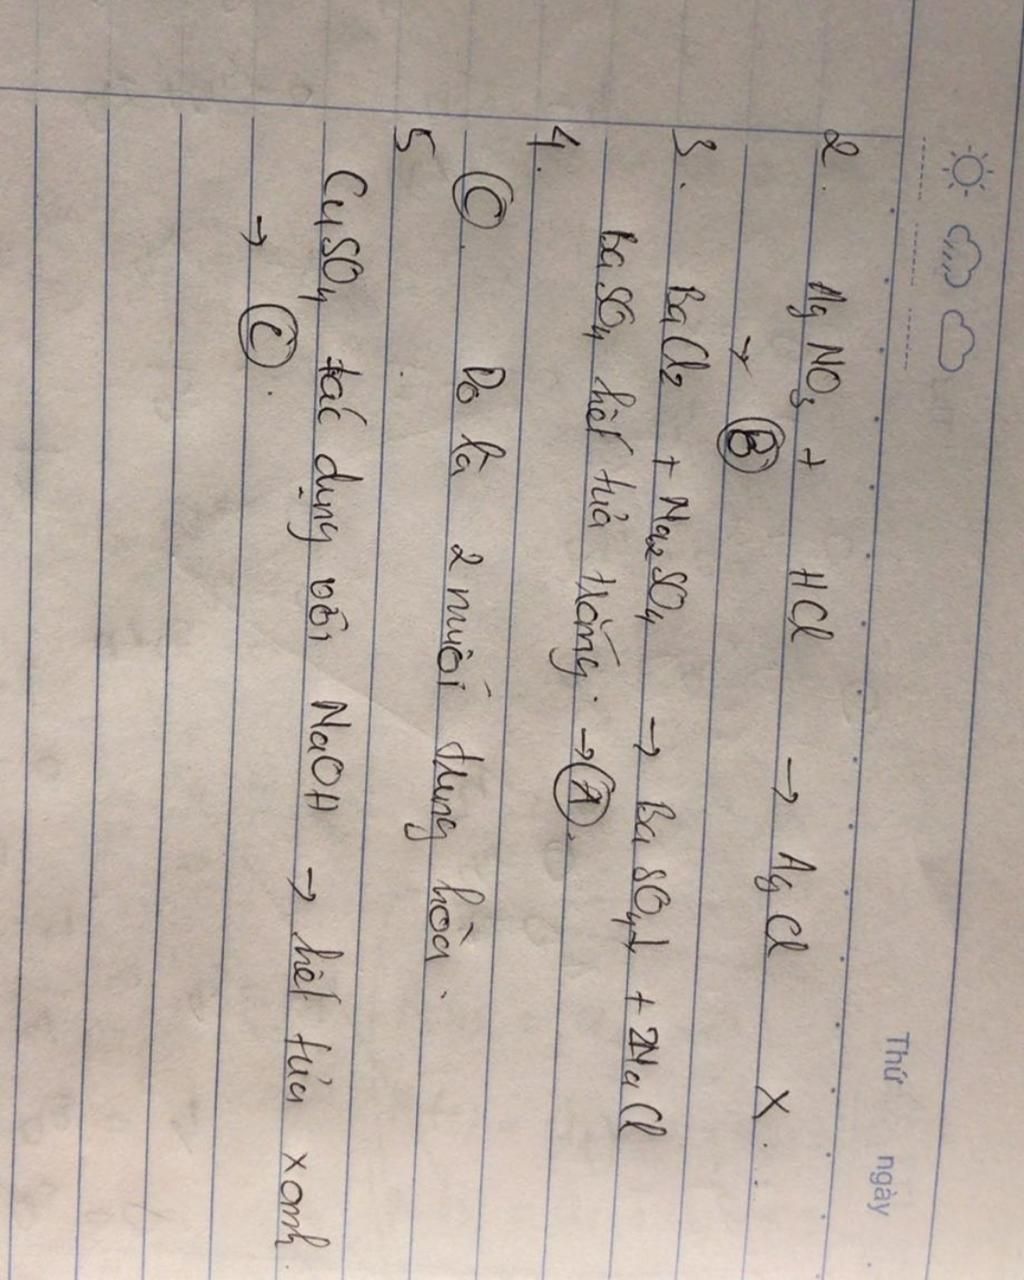 Thứ
ngày
2. AgNO3 + HCl → AgCl X.
→ B
3. BaCl2 + Na2SO4 → BaSO4↓ + 2NaCl
BaSO4 kết tủa trắng. → A.
4.
C. Do là 2 muối trung hòa.
5
CuSO4 tác dụng với NaOH → kết tủa xanh.
→ C.